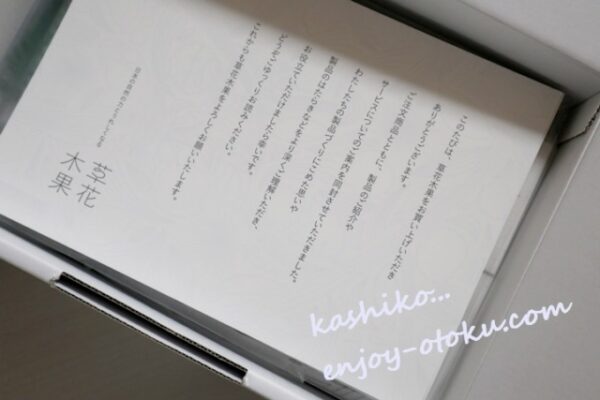 このたびは、草花木果をお買い上げいただき
ありがとうございます。
ご注文商品とともに、製品のご紹介や
サービスについてのご案内を同封させていただきました。
わたしたちの製品づくりにこめた思いや
製品のはたらきなどをより深くご理解いただき、
お役立ていただけましたら幸いです。
どうぞごゆっくりお読みください。
これからも草花木果をよろしくお願いいたします。
草花
木果
kashiko...
enjoy-otoku.com